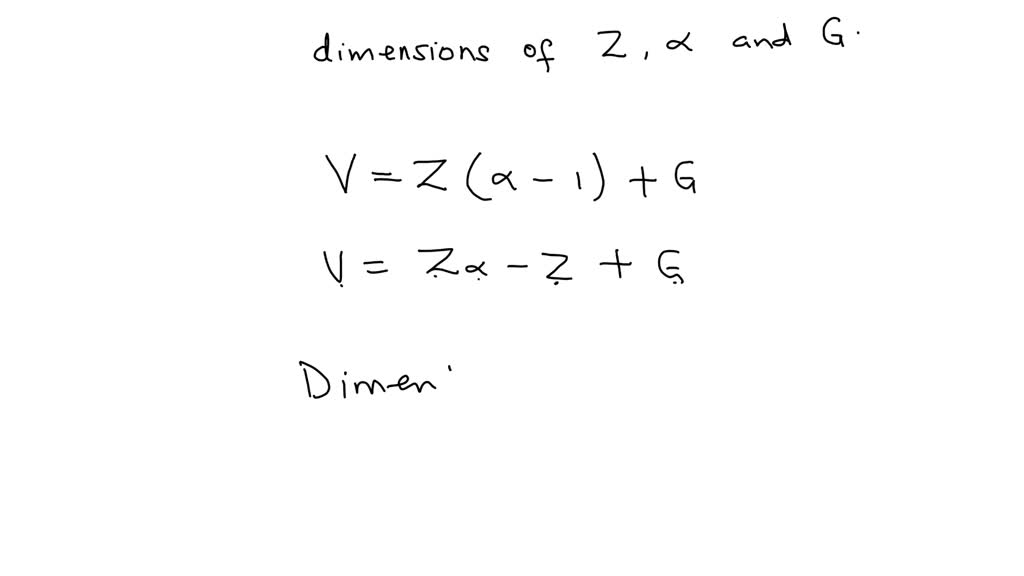 dimensions of Z, α and G.
V = Z (α - 1) + G
V = Zα - Z + G
Dimen